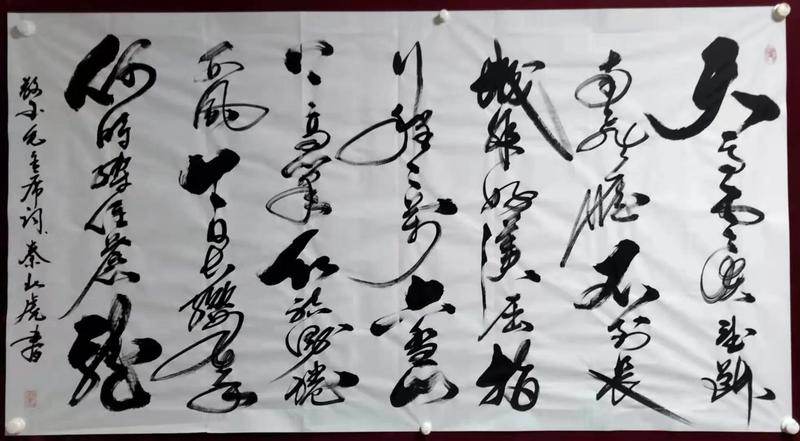 天高雲淡望斷
南飛雁不到長
城非好漢屈指
行程二萬六盤山
上高峰紅旗漫捲
西風今日長纓在手
何時縛住蒼龍
敬书毛主席词 秦虎書